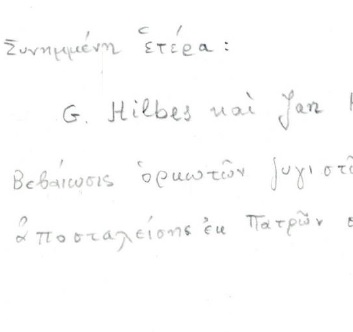 Συνημμένη ἑτέρα:
G. Hilbes καὶ Jan
Βεβαίωσις ὁρκωτῶν ζυγιστῶ
ἀποσταλείσης ἐκ Πατρῶν